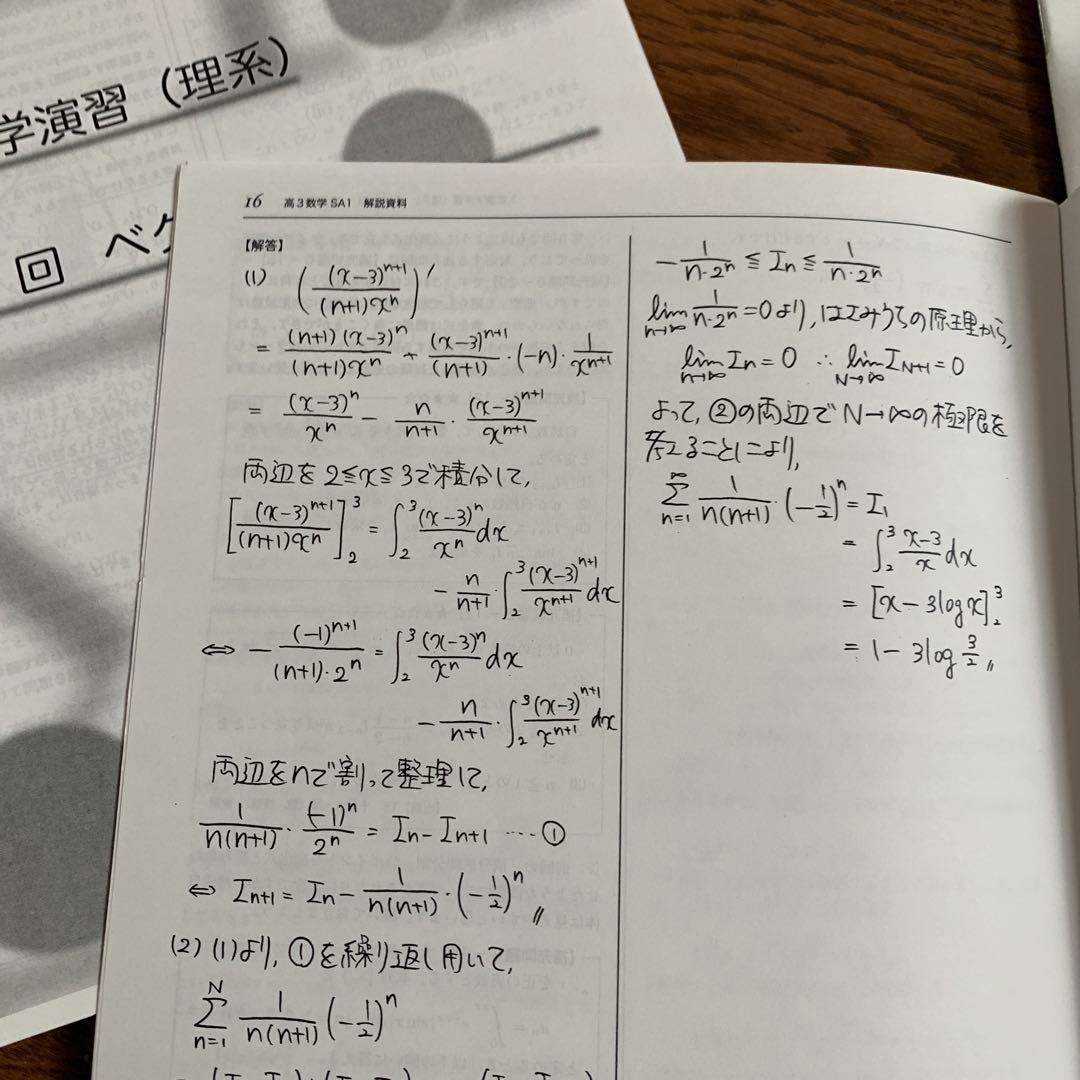 学演習（理系）
回 ベク
16 高3数学 SA1 解説資料
【解答】
(1) ((x-3)^{n+1}/((n+1)x^n))'
= (n+1)(x-3)^n/((n+1)x^n) + (x-3)^{n+1}/(n+1)・(-n)・1/x^{n+1}
= (x-3)^n/x^n - n/(n+1)・(x-3)^{n+1}/x^{n+1}
両辺を2≦x≦3で積分して,
[(x-3)^{n+1}/((n+1)x^n)]_2^3 = ∫_2^3 (x-3)^n/x^n dx
- n/(n+1)・∫_2^3 (x-3)^{n+1}/x^{n+1} dx
⇔ -(-1)^{n+1}/((n+1)・2^n) = ∫_2^3 (x-3)^n/x^n dx
- n/(n+1)・∫_2^3 (x-3)^{n+1}/x^{n+1} dx
両辺をnで割って整理して,
1/(n(n+1))・(-1)^n/2^n = I_n - I_{n+1} ……①
⇔ I_{n+1} = I_n - 1/(n(n+1))・(-1/2)^n〃
(2) (1)より, ①を繰り返し用いて,
Σ_{n=1}^N 1/(n(n+1)) (-1/2)^n
-1/(n・2^n) ≦ I_n ≦ 1/(n・2^n)
lim_{n→∞} 1/(n・2^n) = 0より, はさみうちの原理から,
lim_{n→∞} I_n = 0 ∴ lim_{N→∞} I_{N+1} = 0
よって, ②の両辺でN→∞の極限を
考えることにより,
Σ_{n=1}^∞ 1/(n(n+1))・(-1/2)^n = I_1
= ∫_2^3 (x-3)/x dx
= [x - 3logx]_2^3
= 1 - 3log 3/2〃